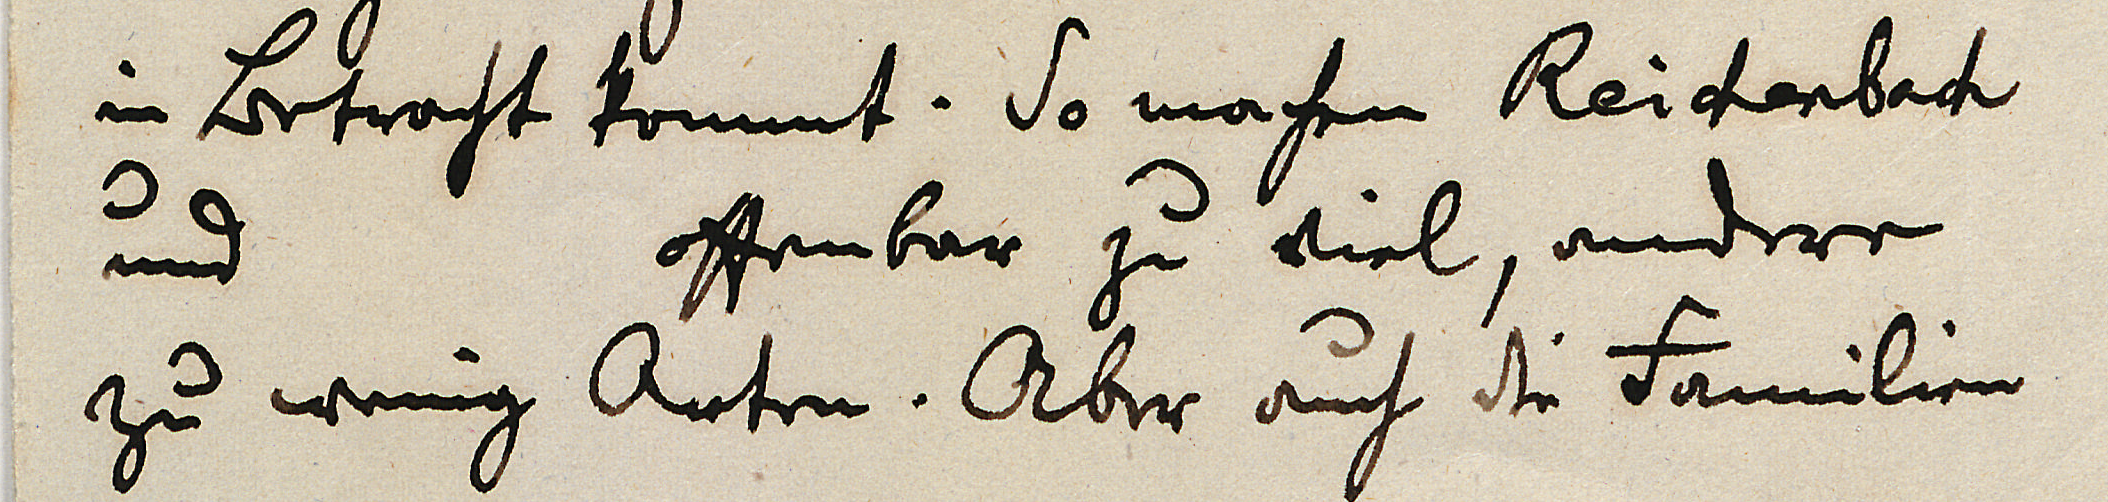 in Betracht kommt. So machen Reichenbach
und offenbar zu viel, andere
zu wenig Arten. Aber auch die Familien